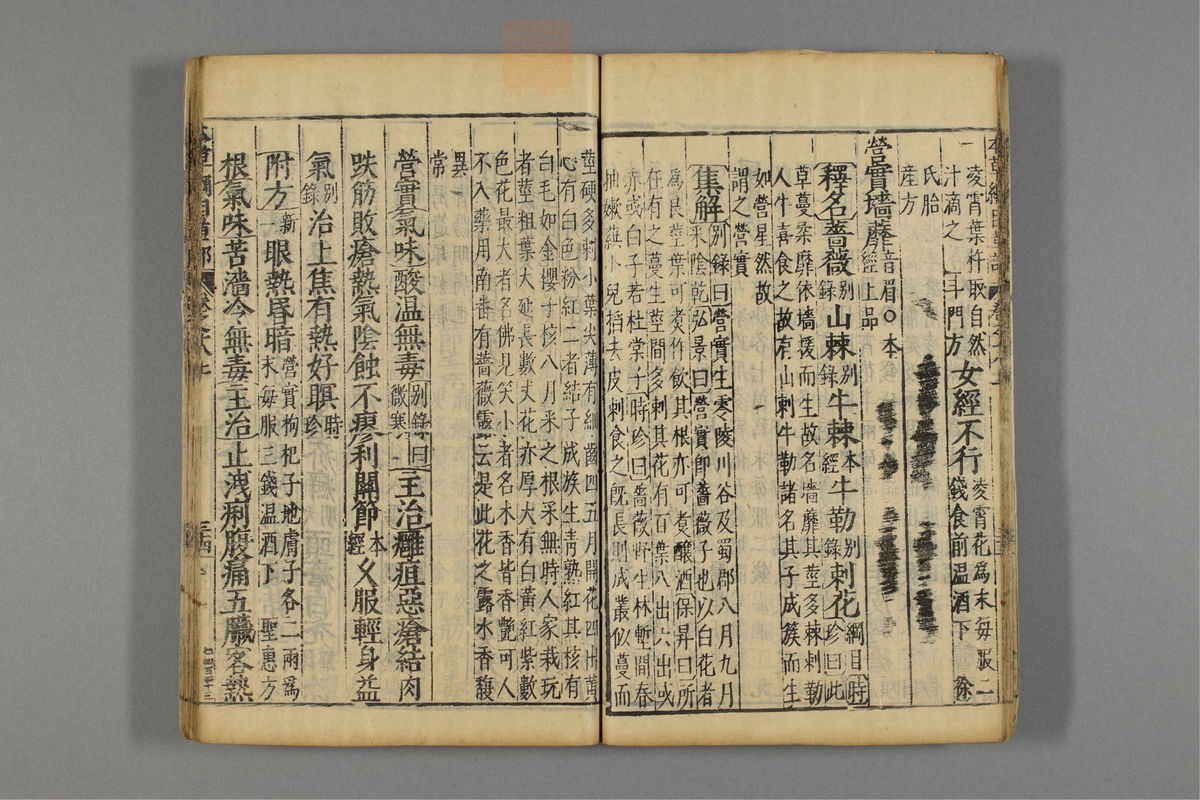 凌霄葉杵取自然
汁滴之 斗門方
女經不行
凌霄花為末每服二
錢食前溫酒下 徐
氏胎
產方
營實墻蘼音眉○本經上品
釋名薔薇別錄山棘別錄牛棘本經牛勒別錄刺花綱目時珍曰此
草蔓柔靡依墻援而生故名墻蘼其莖多棘刺勒
人牛喜食之故有山刺牛勒諸名其子成簇而生
如營星然故
謂之營實
集解別錄曰營實生零陵川谷及蜀郡八月九月
采陰乾弘景曰營實即薔薇子也以白花者
為良莖葉可煮作飲其根亦可煮釀酒保昇曰所
在有之蔓生莖間多刺其花有百葉八出六出或
赤或白子若杜棠子時珍曰薔薇野生林塹間春
抽嫩蕻小兒掐去皮刺食之既長則成叢似蔓而
莖硬多刺小葉尖薄有細齒四五月開花四出黃
心有白色粉紅二者結子成簇生青熟紅其核有
白毛如金櫻子核八月采之根采無時人家栽玩
者莖粗葉大延長數丈花亦厚大有白黃紅紫數
色花最大者名佛見笑小者名木香皆香艷可人
不入藥用南番有薔薇露云是此花之露水香馥
異
常
營實氣味酸溫無毒別錄曰微寒主治癰疽惡瘡結肉
跌筋敗瘡熱氣陰蝕不瘳利關節本經久服輕身益
氣別錄治上焦有熱好瞑時珍
附方新一眼熱昏暗
營實枸杞子地膚子各二兩為
末每服三錢溫酒下 聖惠方
根氣味苦濇冷無毒主治止洩痢腹痛五臟客熱